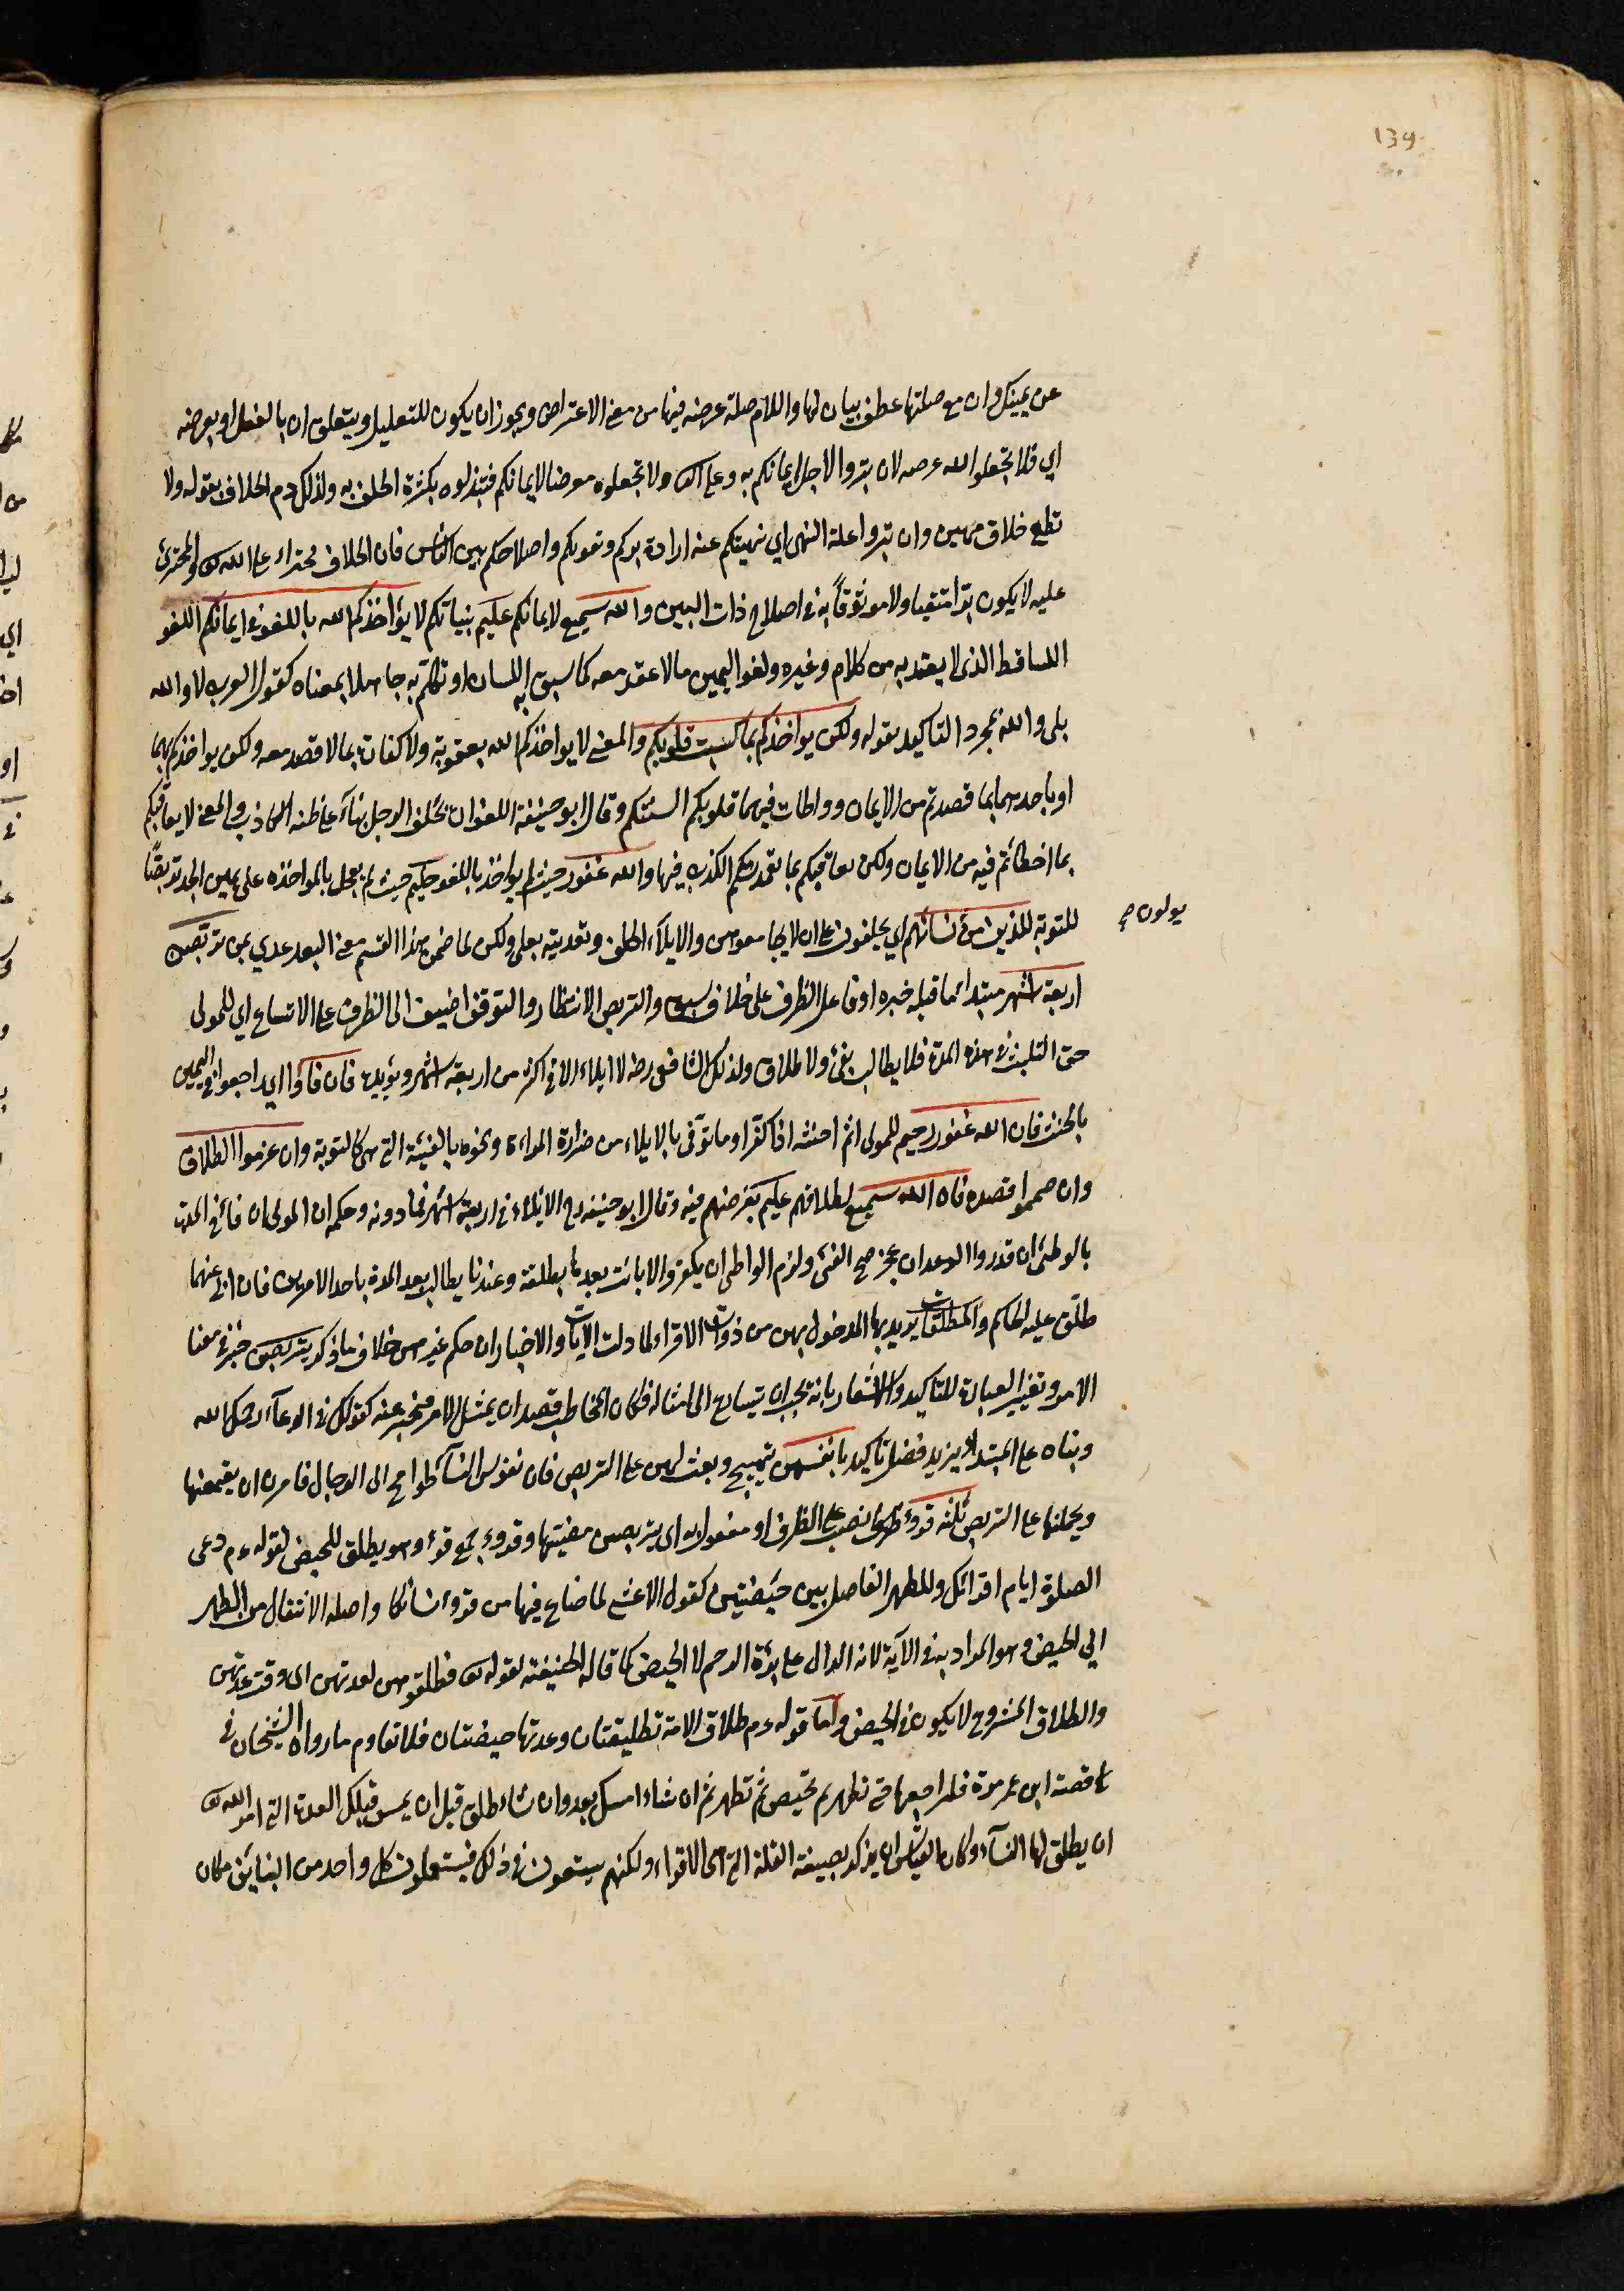 139
عن يمينك وان مع صلتها عطف بيان لها واللام صلة عرضه فيها من معنى الاعتراض ويجوز ان يكون للتعليل ويتعلق ان بالفعل او بعرضه
اي فلا تجعلوا الله عرضه لان تبروا لاجل ايمانكم به وعلى الثاني ولا تجعلوه معرضا لايمانكم فتبذلوه بكثرة الحلف به ولذلك ذم الحلاف بقوله ولا
تطع حلاف مهين وان تبروا علة النهي اي نهيتكم عنه ارادة بركم وتقويكم واصلاحكم بين الناس فان الحلاف مجتراء على الله تع والمجترئ
عليه لا يكون برا متقيا ولا موثوقاً به في اصلاح ذات البين والله سميع لايمانكم عليم بنياتكم لا يؤاخذكم الله باللغو في ايمانكم اللغو
الساقط الذى لا يعتد به من كلام وغيره ولغو اليمين مالا عقد معه كما سبق به اللسان او تكلم به جاهلا بمعناه كقول العرب لا والله
بلى والله لمجرد التاكيد بقوله ولكن يواخذكم بما كسبت قلوبكم والمعنى لا يواخذكم الله بعقوبة ولا كفارة بما لا قصد معه ولكن يواخذكم بهما
او باحدهما بما قصدتم من الايمان وواطات فيها قلوبكم السنتكم وقال ابو حنيفة اللغو ان يحلف الرجل بناء على ظنه الكاذب والمعنى لا يعاقبكم
بما اخطأتم فيه من الايمان ولكن يعاقبكم بما تعمدتم الكذب فيها والله غفور حيث لم يواخذ باللغو حليم حيث لم يعجل بالمواخذه على يمين الجد تربصاً
للتوبة للذين من نسائهم اي يحلفون على ان لا يجامعوهن والايلاء الحلف وتعديته بعلى ولكن لما ضمن هذا القسم معنى البعد عدي بمن تربص
يولون صح
اربعة اشهر مبتدا ما قبله خبره او فاعل الظرف على خلاف سبق والتربص الانتظار والتوقف اضيف الى الظرف على الاتساع اي للمولى
حق التلبث في هذه المدة فلا يطالب بفئ ولا طلاق ولذلك قال الشافعي رضه لا ايلاء الا في اكثر من اربعة اشهر ويؤيده فان فاؤا اي رجعوا في اليمين
بالحنث فان الله غفور رحيم للمولى اثم احنثه اذا كفر او ما توقى بالايلاء من ضرارة المراءة ونحوه بالفيئة التي هي كالتوبة وان عزموا الطلاق
وان صمموا قصده فان الله سميع لطلاقهم عليم بغرضهم فيه وقال ابو حنيفه رح الايلاء في اربعة اشهر فما دونه وحكمه ان المولى ان فاء في المدة
بالوطئ ان قدر والوعد ان عجز صح الفئ ولزم الواطى ان يكفر والا بانت بعدها بطلقة وعندنا يطالب بعد المدة باحد الامرين فان ابى عنهما
طلق عليه الحاكم والمطلقات يريد بها المدخول بهن من ذوات الاقراء لما دلت الايات والاخبار ان حكم غيرهن خلاف ما ذكر يتربصن خبر في معنا
الامر وتغيير العبارة للتاكيد والاشعار بانه يجب ان يتسارع الى امتثاله فكان المخاطب قصد ان يمتثل الامر فيخبر عنه كقولك في الدعاء رحمك الله
وبناه على المبتدا يزيد فضل تاكيد بانفسهن تهييج وبعث لهن على التربص فان نفوس النساء طوامح الى الرجال فامرن ان يقمعنها
ويحملنها على التربص ثلثة قروء نصب على الظرف او مفعول به اى يتربصن مضيتها وقروء جمع قرء وهو يطلق للحيض لقوله ءم دعى
الصلوة ايام اقرائك وللطهر الفاصل بين حيضتين كقول الاعشى لما ضاع فيها من قروء نسائكا واصله الانتقال من الطهر
الى الحيض وهو المراد به في الآية لانه الدال على براءة الرحم لا الحيض كما قاله الحنيفة لقوله تع فطلقوهن لعدتهن اى وقت عدتهن
والطلاق المشروع لا يكون في الحيض واما قوله ءم طلاق الامة تطليقتان وعدتها حيضتان فلا تقاوم ما رواه الشيخان في
قصة ابن عمر مره فليراجعها حتى تطهر ثم تحيض ثم تطهر ثم ان شاء امسك بعد وان شاء طلق قبل ان يمس فتلك العدة التي امر الله تع
ان يطلق لها النساء وكان القياس ان يذكر بصيغة القلة التي هى الاقراء ولكنهم يتسعون في ذلك فيستعملون كل واحد من البنائين مكان